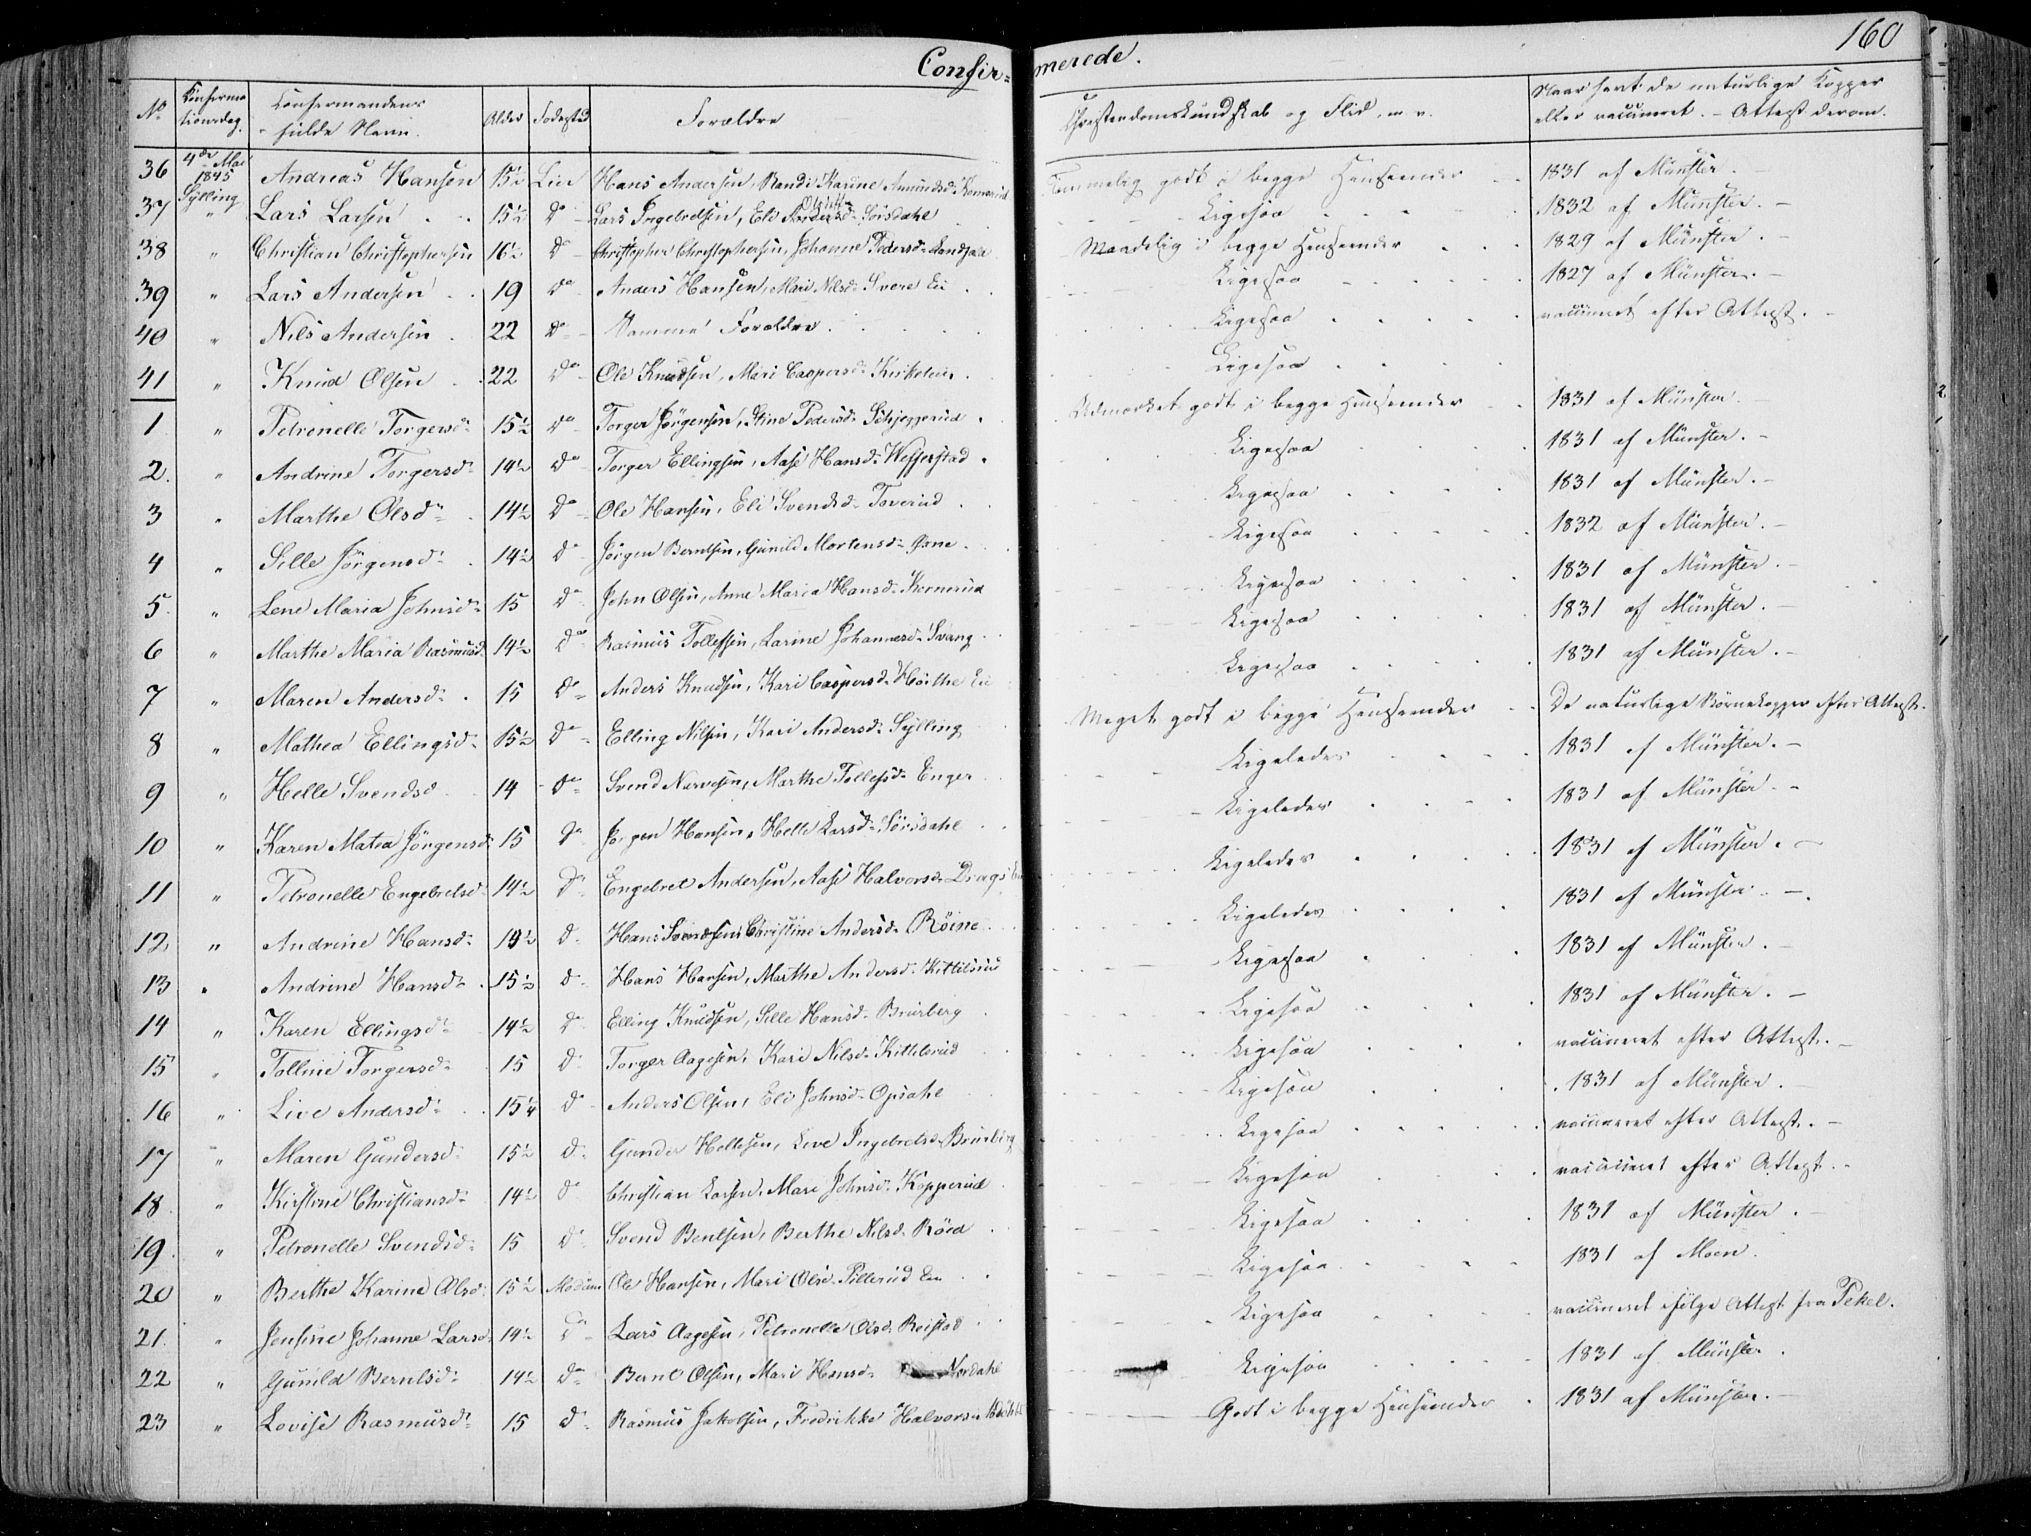 Confir= merede. 160
No Confirmationsdag. Confirmandens fulde Navn. Alder Fødested Forældre Christendomskundskab og Flid, m. v. Naar havt de naturlige Kopper eller vaccineret. - Attest derom.
36 4de Mai 1845 Sylling Andreas Hansen 15½ Lier Hans Andersen, Randi Karine Amundsd. Temmelig godt i begge Henseender 1831 af Münster.
37 " Lars Larsen 15½ Do Lars Ingebretsen, Eli Sørsdahl Ligesaa 1832 af Münster. -
38 " Christian Christophersen 16½ Do Christopher Christophersen, Johanne Pedersd. Maadelig i begge Henseender 1829 af Münster. -
39 " Lars Andersen 19 Do Anders Hansen, Mari Nilsd. Svere Ei Ligesaa 1827 af Münster. -
40 " Nils Andersen 22 Do Samme Forældre. Ligesaa vaccineret efter Attest. -
41 " Knud Olsen 22 Do Ole Knudsen, Mari Caspersd. Ligesaa
1 " Petronelle Torgersd. 15½ Do Torger Jørgensen, Stine Pedersd. Schjeggerud Udmærket godt i begge Henseender 1831 af Münster. -
2. " Andrine Torgersd. 14½ Do Torger Ellingsen, Aase Hansd. Wefferstad Ligesaa 1831 af Münster. -
3 " Marthe Olsd. 14½ Do Ole Hansen, Eli Svendsd. Toverud Ligesaa 1831 af Münster. -
4 " Sille Jørgensd. 14½ Do Jørgen Berntsen, Gunild Mortensd. Ligesaa 1832 af Münster. -
5. " Lene Maria Johnsd. 15 Do John Olsen, Anne Maria Hansd. Kornerud Ligesaa 1831 af Münster. -
6 " Marthe Maria Rasmusd. 14½ Do Rasmus Tollefsen, Larine Johannesd. Svang Ligesaa 1831 af Münster. -
7 " Maren Andersd. 15 Do Anders Knudsen, Kari Caspersd. Høithe Ei Ligesaa 1831 af Münster. -
8 " Mathea Ellingsd. 15½ Do Elling Nilsen, Kari Andersd. Sylling Meget godt i begge Henseender De naturlige Børnekopper efter Attest.
9 " Helle Svendsd 14 Do Svend Narvesen, Marthe Tollefsd. Enger Ligeledes 1831 af Münster. -
10 " Karen Matea Jørgensd. 15 Do Jørgen Hansen, Helle Larsd. Sørsdahl Ligeledes 1831 af Münster. -
11 " Petronelle Engebretsd. 14½ Do Engebret Andersen, Aase Halvorsd. Drags Ei Ligeledes 1831 af Münster. -
12. " Andrine Hansd. 14½ d. Hans Svendsen, Christine Andersd. Røine Ligeledes 1831 af Münster. -
13 " Andrine Hansd. 15½ d. Hans Hansen, Marthe Andersd. Kittilsrud Ligesaa 1831 af Münster. -
14 " Karen Ellingsd. 14½ Do Elling Knudsen, Sille Hansd. Brurberg Ligesaa 1831 af Münster. -
15 " Tolline Torgersd. 15 D. Torger Aagesen, Kari Nilsd. Kittilsrud Ligesaa vaccineret efter Attest. -
16 " Live Andersd. 15¼ Do Anders Olsen, Eli Johnsd. Opsahl Ligesaa 1831 af Münster. -
17 " Maren Gundersd. 15½ D. Gunder Hellesen, Live Ingebretsd. Brurberg Ligesaa vaccineret efter Attest. -
18 " Kirstine Christiansd. 14½ Do Christian Larsen, Mari Johnsd. Kopperud Ligesaa vaccineret efter Attest. -
19. " Petronelle Svendsd. 15 D. Svend Bentsen, Berthe Nilsd. Røed Ligesaa 1831 af Münster. -
20 " Berthe Karine Olsd. 15½ Modum Ole Hansen, Mari Olsd. Pillerud Ei Ligesaa 1831 af Moen.
21. " Jensine Johanne Larsd. 14½ Do Lars Aagesen, Petronelle Olsd. Reistad Ligesaa vaccineret ifølge Attest fra Pekel.
22 " Gunild Berntsd. 14½ Do Bernt Olsen, Mari Hansd. Nordahl Ligesaa 1831 af Münster.
23 " Lovise Rasmusd. 15 D. Rasmus Jakobsen, Fredrikke Halvorsd. Godt i begge Henseender 1831 af Münster. -